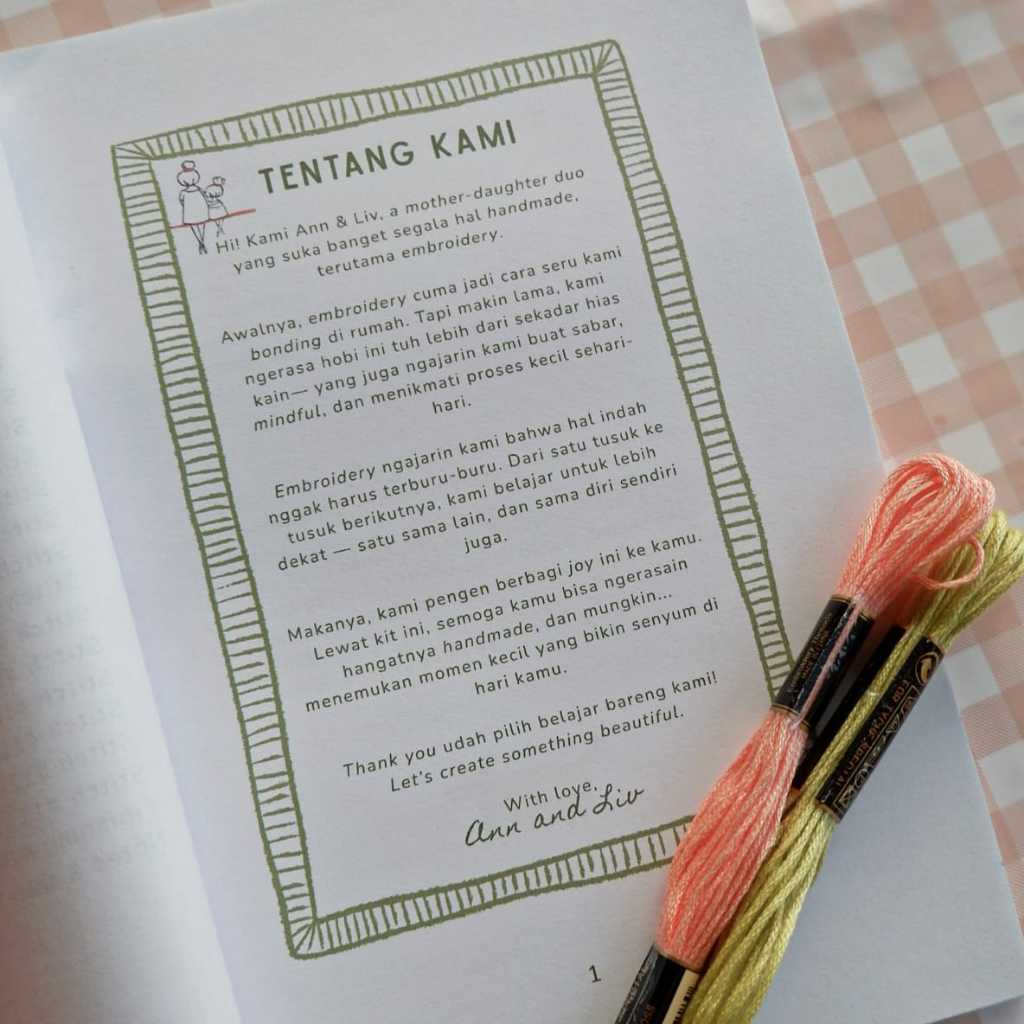 TENTANG KAMI
Hi! Kami Ann & Liv, a mother-daughter duo
yang suka banget segala hal handmade,
terutama embroidery.
Awalnya, embroidery cuma jadi cara seru kami
bonding di rumah. Tapi makin lama, kami
ngerasa hobi ini tuh lebih dari sekadar hias
kain— yang juga ngajarin kami buat sabar,
mindful, dan menikmati proses kecil sehari-
hari.
Embroidery ngajarin kami bahwa hal indah
nggak harus terburu-buru. Dari satu tusuk ke
tusuk berikutnya, kami belajar untuk lebih
dekat — satu sama lain, dan sama diri sendiri
juga.
Makanya, kami pengen berbagi joy ini ke kamu.
Lewat kit ini, semoga kamu bisa ngerasain
hangatnya handmade, dan mungkin...
menemukan momen kecil yang bikin senyum di
hari kamu.
Thank you udah pilih belajar bareng kami!
Let's create something beautiful.
With love,
Ann and Liv
1